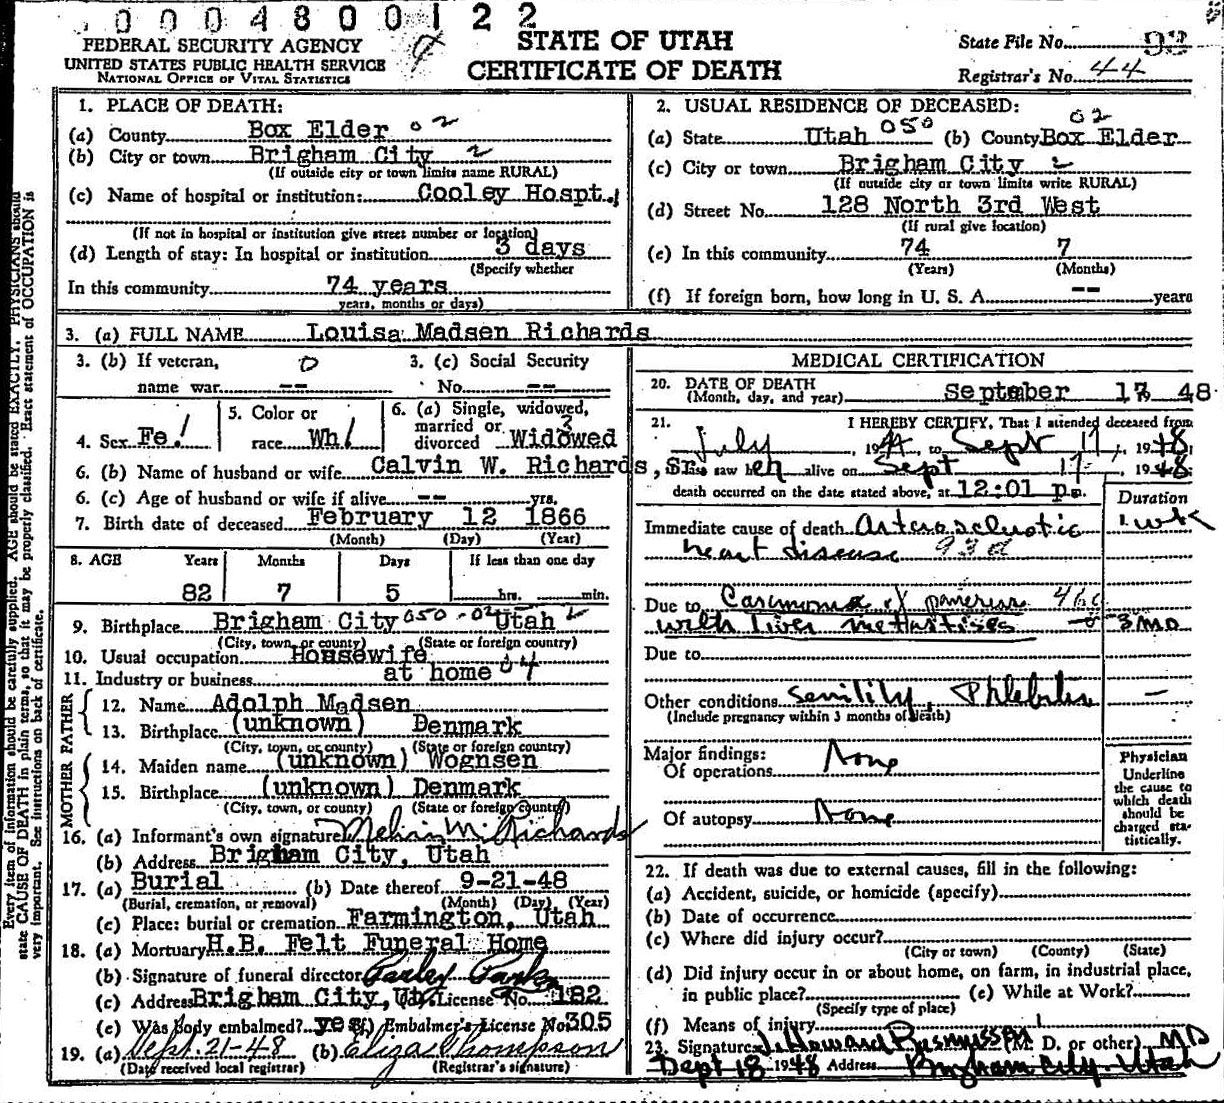 0 0 0 4 8 0 0 1 2 2
FEDERAL SECURITY AGENCY
UNITED STATES PUBLIC HEALTH SERVICE
NATIONAL OFFICE OF VITAL STATISTICS
STATE OF UTAH
CERTIFICATE OF DEATH
State File No. 93
Registrar's No. 44
1. PLACE OF DEATH:
(a) County Box Elder 02
(b) City or town Brigham City 2
(If outside city or town limits name RURAL)
(c) Name of hospital or institution: Cooley Hospt.
(If not in hospital or institution give street number or location)
(d) Length of stay: In hospital or institution 3 days
(Specify whether
In this community 74 years
years, months or days)
2. USUAL RESIDENCE OF DECEASED:
02
(a) State Utah 050 (b) County Box Elder
(c) City or town Brigham City 2
(If outside city or town limits write RURAL)
(d) Street No. 128 North 3rd West
(If rural give location)
(e) In this community 74 7
(Years) (Months)
(f) If foreign born, how long in U. S. A. -- years
3. (a) FULL NAME Louisa Madsen Richards
3. (b) If veteran, 0 3. (c) Social Security
name war -- No. --
4. Sex Fe. 1 5. Color or race Wh 1 6. (a) Single, widowed, married or divorced 3 Widowed
6. (b) Name of husband or wife Calvin W. Richards, Sr.
6. (c) Age of husband or wife if alive -- yrs.
7. Birth date of deceased February 12 1866
(Month) (Day) (Year)
8. AGE Years Months Days If less than one day
82 7 5 hrs. min.
9. Birthplace Brigham City 050-02 Utah 2
(City, town, or county) (State or foreign country)
10. Usual occupation Housewife
11. Industry or business at home 04
FATHER
12. Name Adolph Madsen
13. Birthplace (unknown) Denmark
(City, town, or county) (State or foreign country)
MOTHER
14. Maiden name (unknown) Wognsen
15. Birthplace (unknown) Denmark
(City, town, or county) (State or foreign country)
16. (a) Informant's own signature Melvin M. Richards
(b) Address Brigham City, Utah
17. (a) Burial (b) Date thereof 9-21-48
(Burial, cremation, or removal) (Month) (Day) (Year)
(c) Place: burial or cremation Farmington, Utah
18. (a) Mortuary H.B. Felt Funeral Home
(b) Signature of funeral director
(c) Address Brigham City, Ut. License No. 182
(e) Was body embalmed? yes (f) Embalmer's License No. 305
19. (a) Sept. 21-48 (b) Eliza Thompson
(Date received local registrar) (Registrar's signature)
MEDICAL CERTIFICATION
20. DATE OF DEATH
(Month, day, and year) September 17 48
21. I HEREBY CERTIFY, That I attended deceased from
July, 1944, to Sept 17, 1948;
I last saw her alive on Sept 17, 1948;
death occurred on the date stated above, at 12:01 p.m.
Duration
Immediate cause of death Arteriosclerotic 1 wk
heart disease 93d
Due to Carcinoma of pancreas 46
with liver metastises 3 mo
Due to
Other conditions Senility, Phlebitis —
(Include pregnancy within 3 months of death)
Major findings:
Of operations None
Of autopsy None
Physician
Underline
the cause to
which death
should be
charged sta-
tistically.
22. If death was due to external causes, fill in the following:
(a) Accident, suicide, or homicide (specify)
(b) Date of occurrence
(c) Where did injury occur?
(City or town) (County) (State)
(d) Did injury occur in or about home, on farm, in industrial place,
in public place? (e) While at Work?
(Specify type of place)
(f) Means of injury
23. Signature J. Howard Rasmussen (M. D. or other) MD
Sept 18 1948 Address Brigham City - Utah
Every item of information should be carefully supplied. AGE should be stated EXACTLY. PHYSICIANS should
state CAUSE OF DEATH in plain terms, so that it may be properly classified. Exact statement of OCCUPATION is
very important. See instructions on back of certificate.